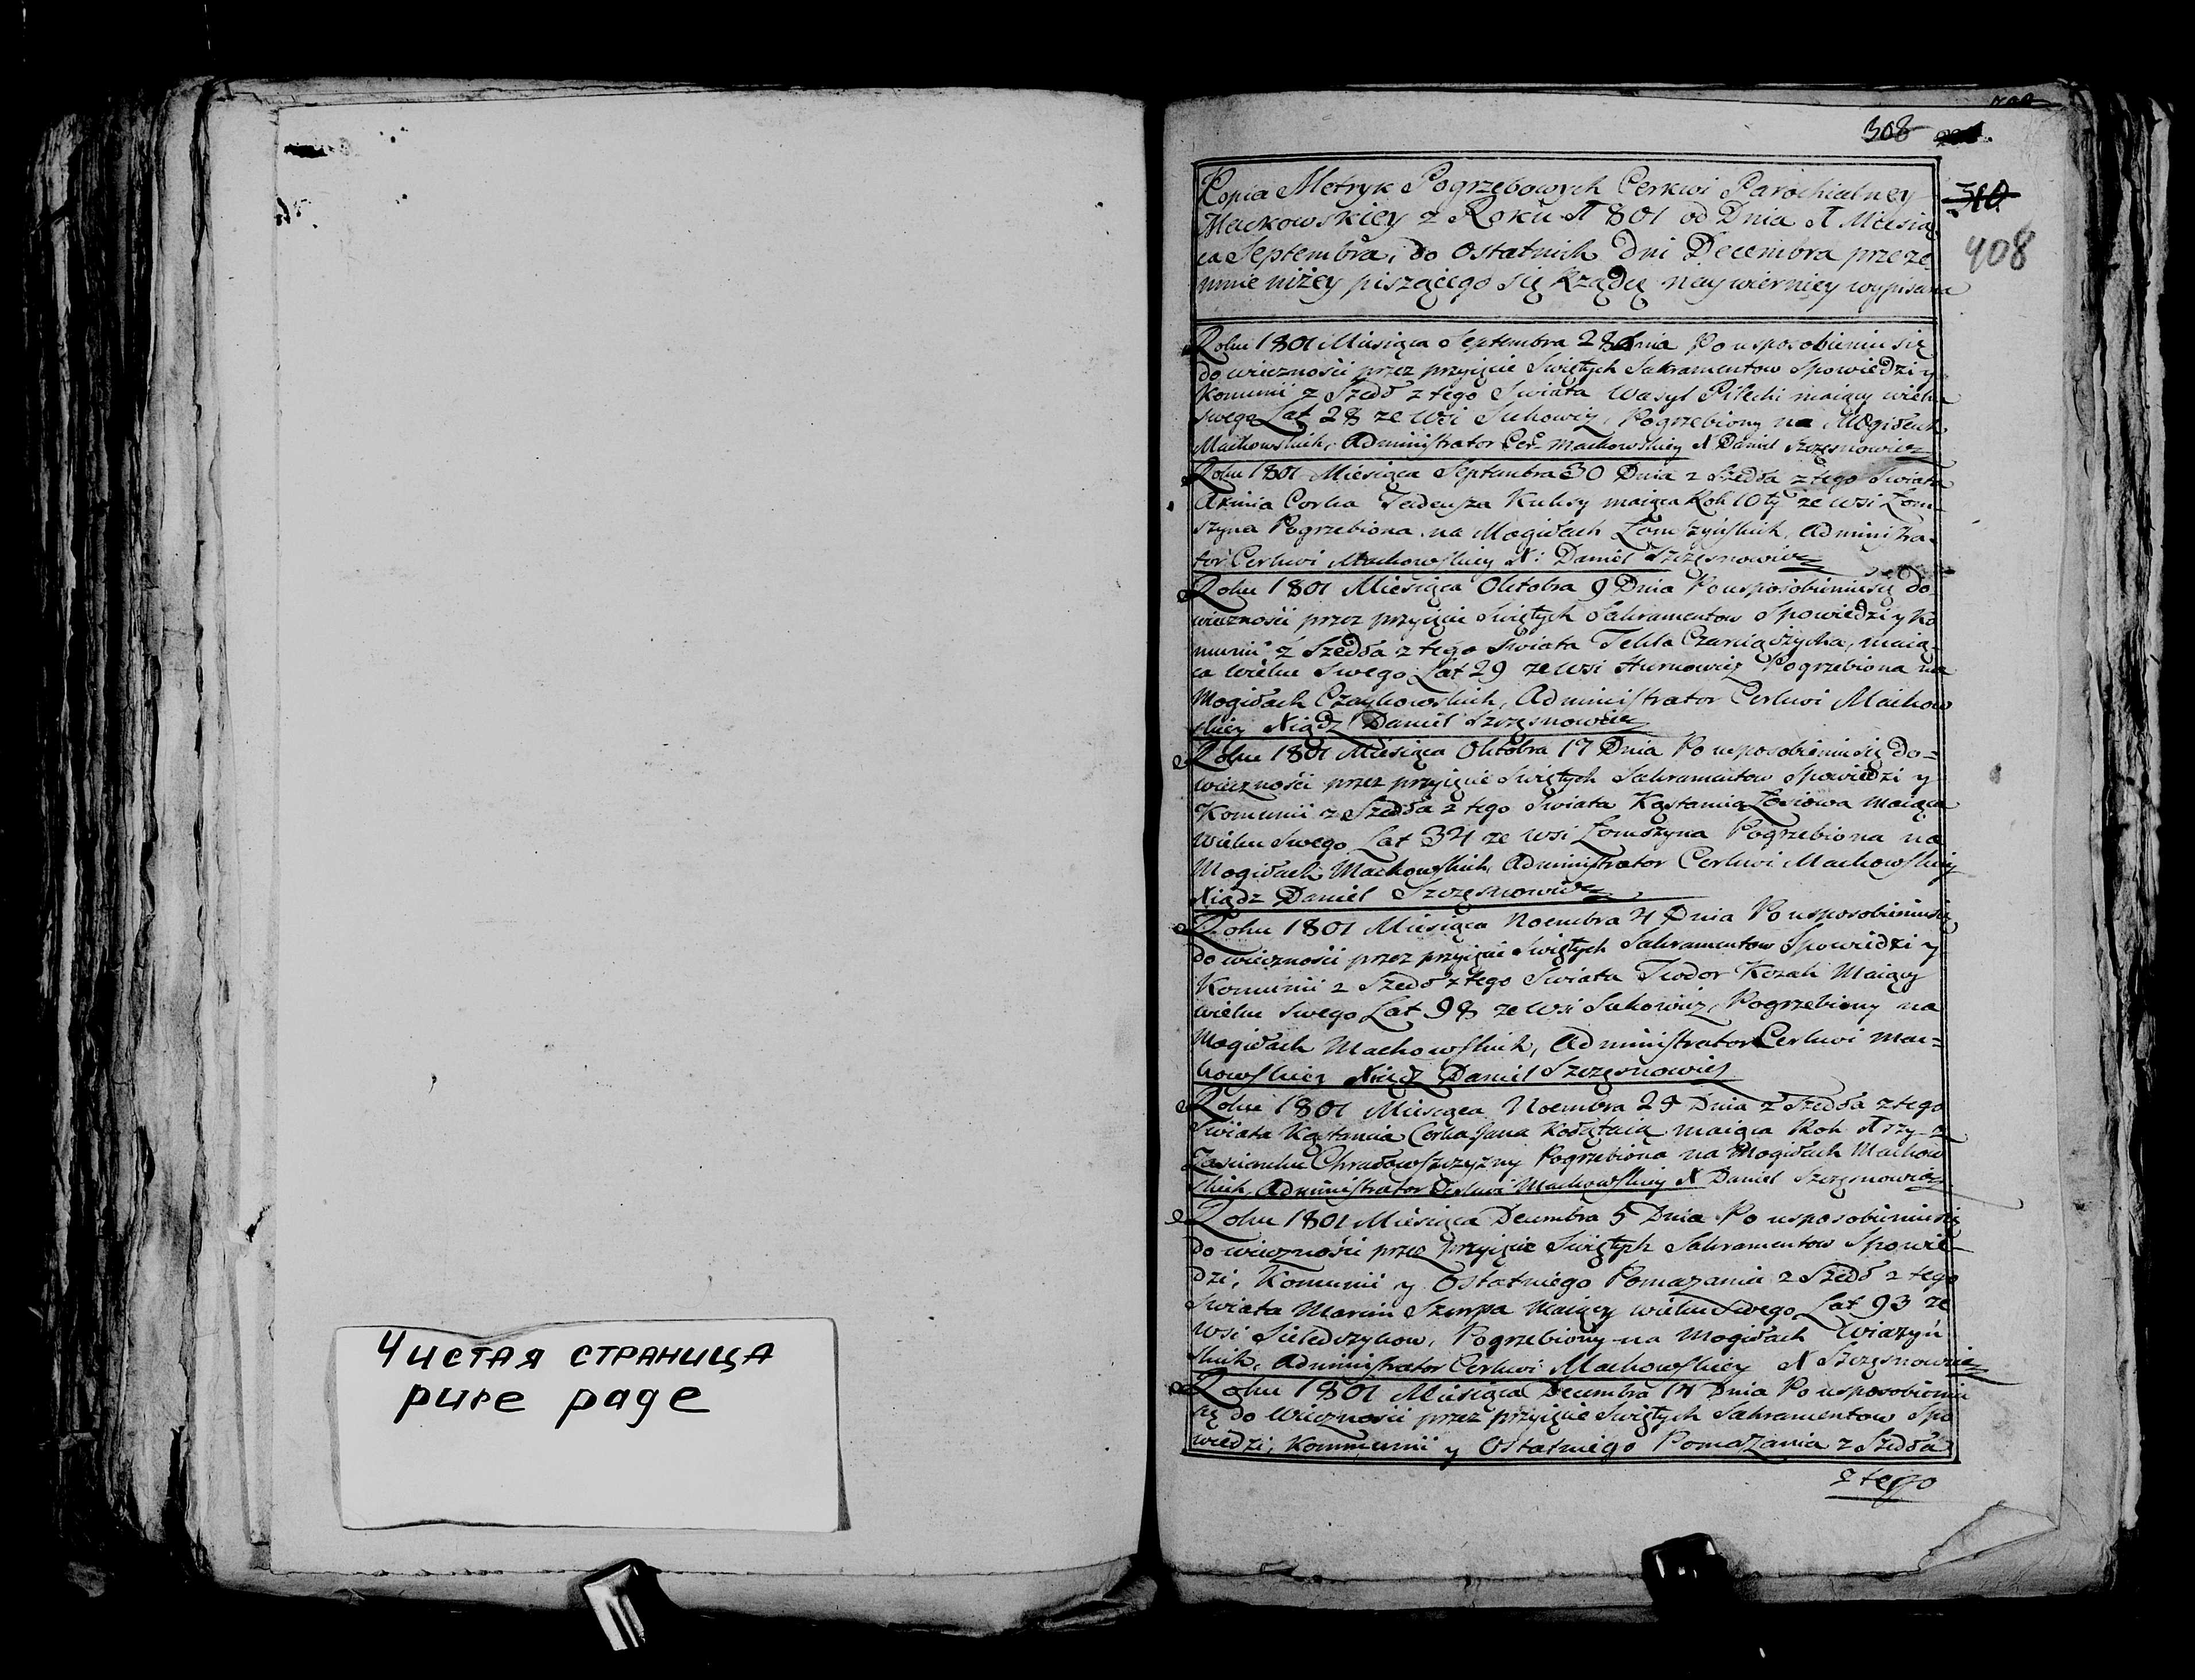 Чистая страница
pure page
308
310
408
Kopia Metryk Pogrzebowych Cerkwi Parochialney
Maćkowskiey z Roku 1801 od Dnia 1 Miesią
ca Septembra, do Ostatnich Dni Decembra przeze
mnie niżey piszącego się Rządcę naywierniey wypisana
Roku 1801 Miesiąca Septembra 28 Dnia Po usposobieniu się
do wieczności przez przyięcie Swiętych Sakramentow Spowiedzi y
Komunii z Szedł z tego Swiata Wasyl Pilecki maiący wieku
swego Lat 28 ze Wsi Sukowicz, Pogrzebiony na Mogiłach
Maćkowskich, Administrator Cer: Maćkowskiey X Daniel Szczęsnowicz
Roku 1801 Miesiąca Septembra 30 Dnia z Szedła z tego Swiata
Axinia Corka Tadeusza Kuksy maiąca Rok 10ty ze Wsi Łom-
szyna Pogrzebiona na Mogiłach Łomszyńskich, Administra-
tor Cerkwi Maćkowskiey X: Daniel Szczęsnowicz
Roku 1801 Miesiąca Oktobra 9 Dnia Po usposobieniu się do
wieczności przez przyięcie Swiętych Sakramentow Spowiedzi y Ko
munii z Szedła z tego Swiata Tekla maią-
ca wieku Swego Lat 29 ze Wsi Pogrzebiona na
Mogiłach Administrator Cerkwi Maćkow
skiey Xiądz Daniel Szczęsnowicz
Roku 1801 Miesiąca Oktobra 17 Dnia Po usposobieniu się do=
wieczności przez przyięcie Swiętych Sakramentow Spowiedzi y
Komunii z Szedła z tego Swiata Kąstancia Łosiowa maiąca
Wieku Swego Lat 34 ze Wsi Łomszyna Pogrzebiona na
Mogiłach Maćkowskich, Administrator Cerkwi Maćkowskiey
Xiądz Daniel Szczęsnowicz
Roku 1801 Miesiąca Noembra 4 Dnia Po usposobieniu się
do wieczności przez przyięcie Swiętych Sakramentow Spowiedzi y
Komunii z Szedł z tego Swiata Teodor Kozak Maiący
wieku Swego Lat 98 ze Wsi Sukowicz, Pogrzebiony na
Mogiłach Maćkowskich, Administrator Cerkwi Mać=
kowskiey Xiądz Daniel Szczęsnowicz
Roku 1801 Miesiąca Noembra 29 Dnia z Szedła z tego
Swiata Kąstancia Corka Jana maiąca Rok
Zascianku Pogrzebiona na Mogiłach Maćkow
skich, Administrator Cerkwi Maćkowskiey X Daniel Szczęsnowicz
Roku 1801 Miesiąca Decembra 5 Dnia Po usposobieniu się
do wieczności przez przyięcie Swiętych Sakramentow Spowie-
dzi, Komunii y Ostatniego Pomazania z Szedł z tego
Swiata Marcin Szerpa Maiący wieku Swego Lat 93 ze
Wsi Pogrzebiony na Mogiłach Wiazyń
skich, Administrator Cerkwi Maćkowskiey X Szczęsnowicz
Roku 1801 Miesiąca Decembra 14 Dnia Po usposobieniu
się do Wieczności przez przyięcie Swiętych Sakramentow Spo
wiedzi, Kommunii y Ostatniego Pomazania z Szedła
z tego